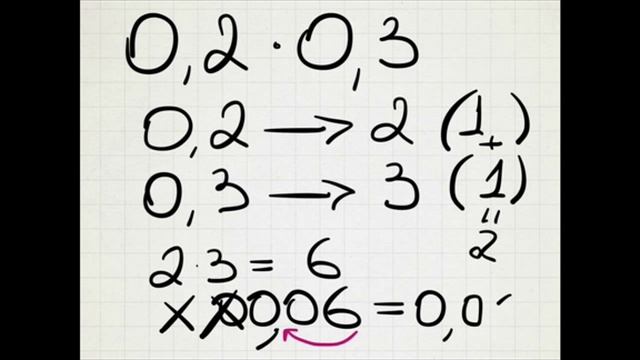 0,2 · 0,3
0,2 → 2 (1)
+
0,3 → 3 (1)
=
2
2 · 3 = 6
0,06 = 0,0